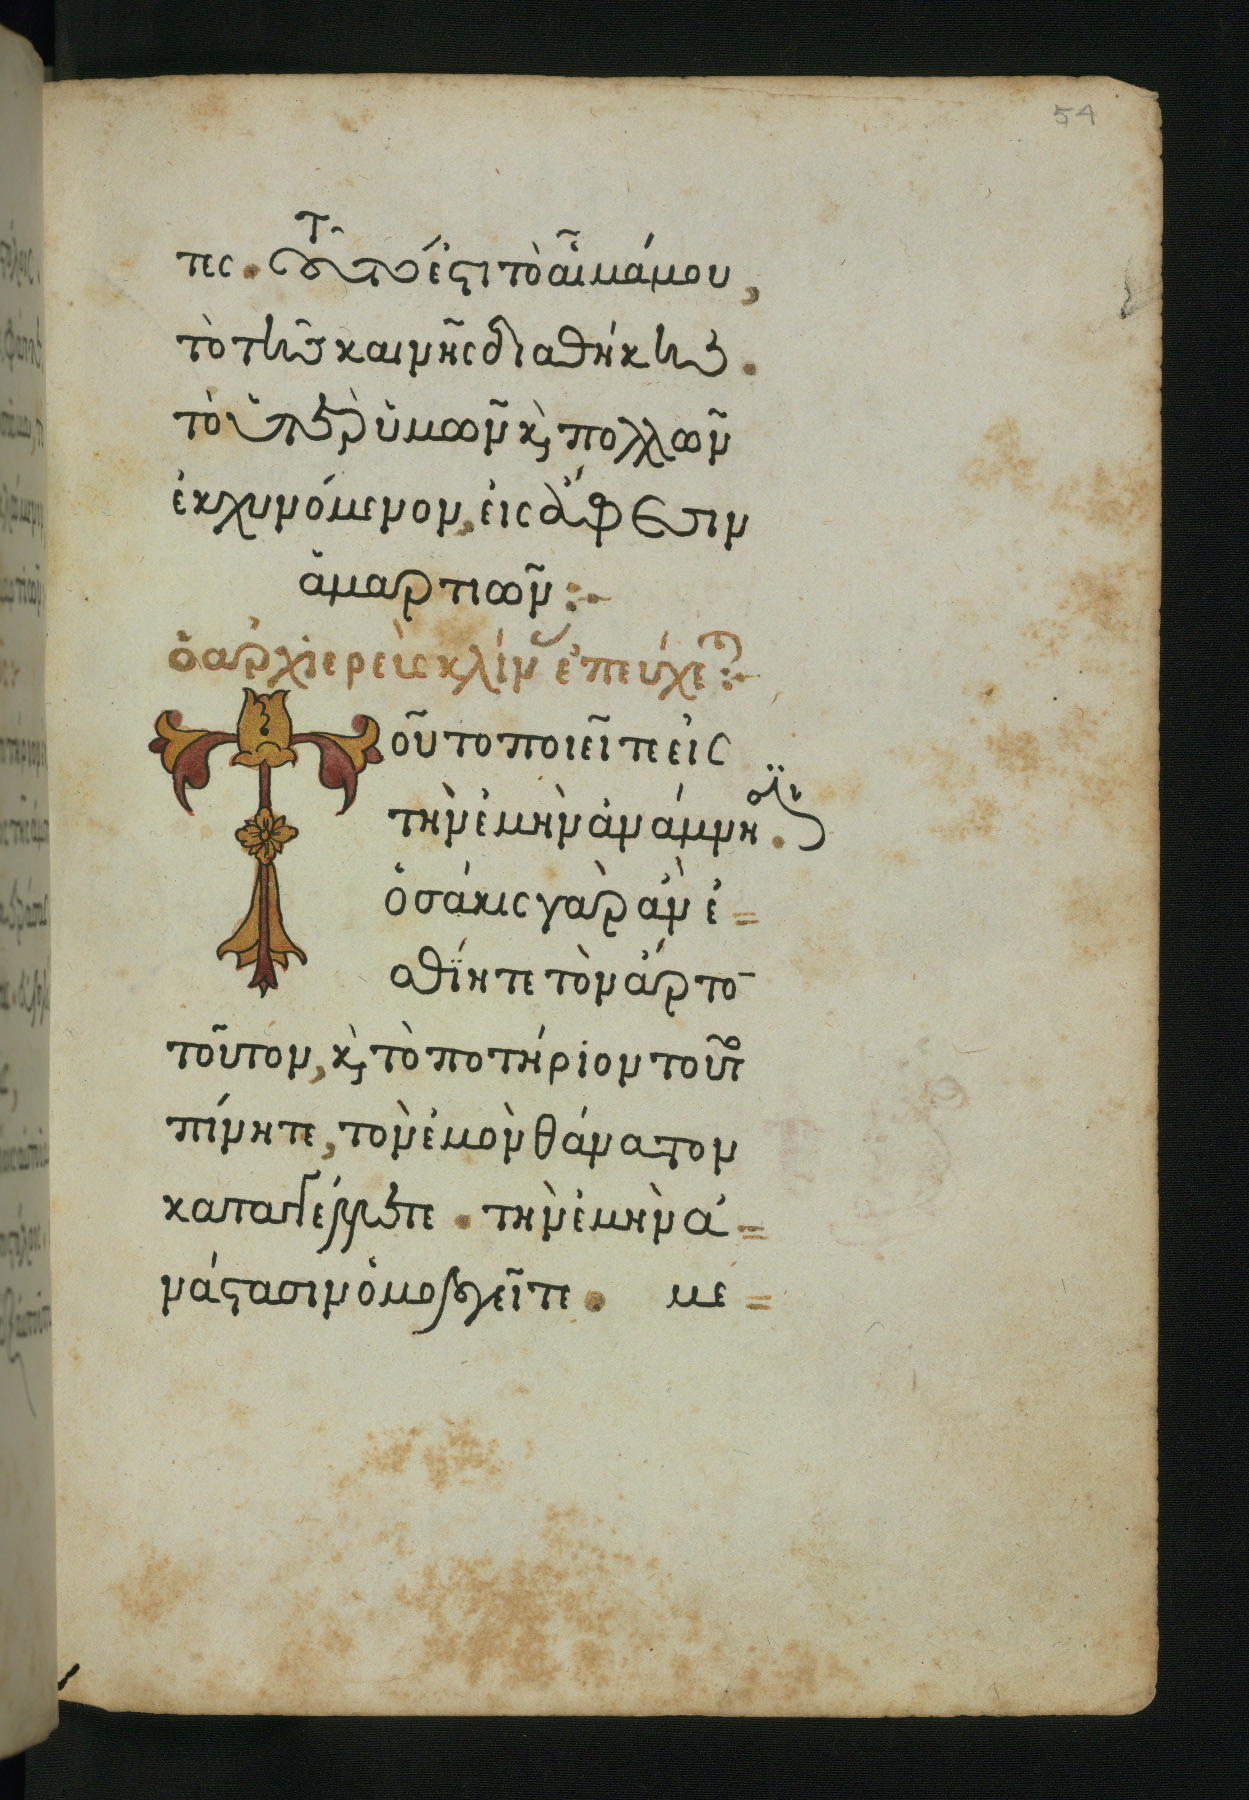 54
τες. τοῦτό ἐστι τὸ αἷμά μου,
τὸ τῆς καινῆς διαθήκης.
τὸ ὑπὲρ ὑμῶν κ(αὶ) πολλῶν
ἐκχυνόμενον, εἰς ἄφεσιν
ἁμαρτιῶν :-
ὁ ἀρχιερεὺς κλίν ἐπεύχε :-
τοῦτο ποιεῖτε εἰς
τὴν ἐμὴν ἀνάμνησιν.
ὁσάκις γὰρ ἂν ἐ=
σθίητε τὸν ἄρτο̄
τοῦτον, κ(αὶ) τὸ ποτήριον τοῦτο
πίνητε, τὸν ἐμὸν θάνατον
καταγγέλλετε. τὴν ἐμὴν ἀ=
νάστασιν ὁμολογεῖτε. με=